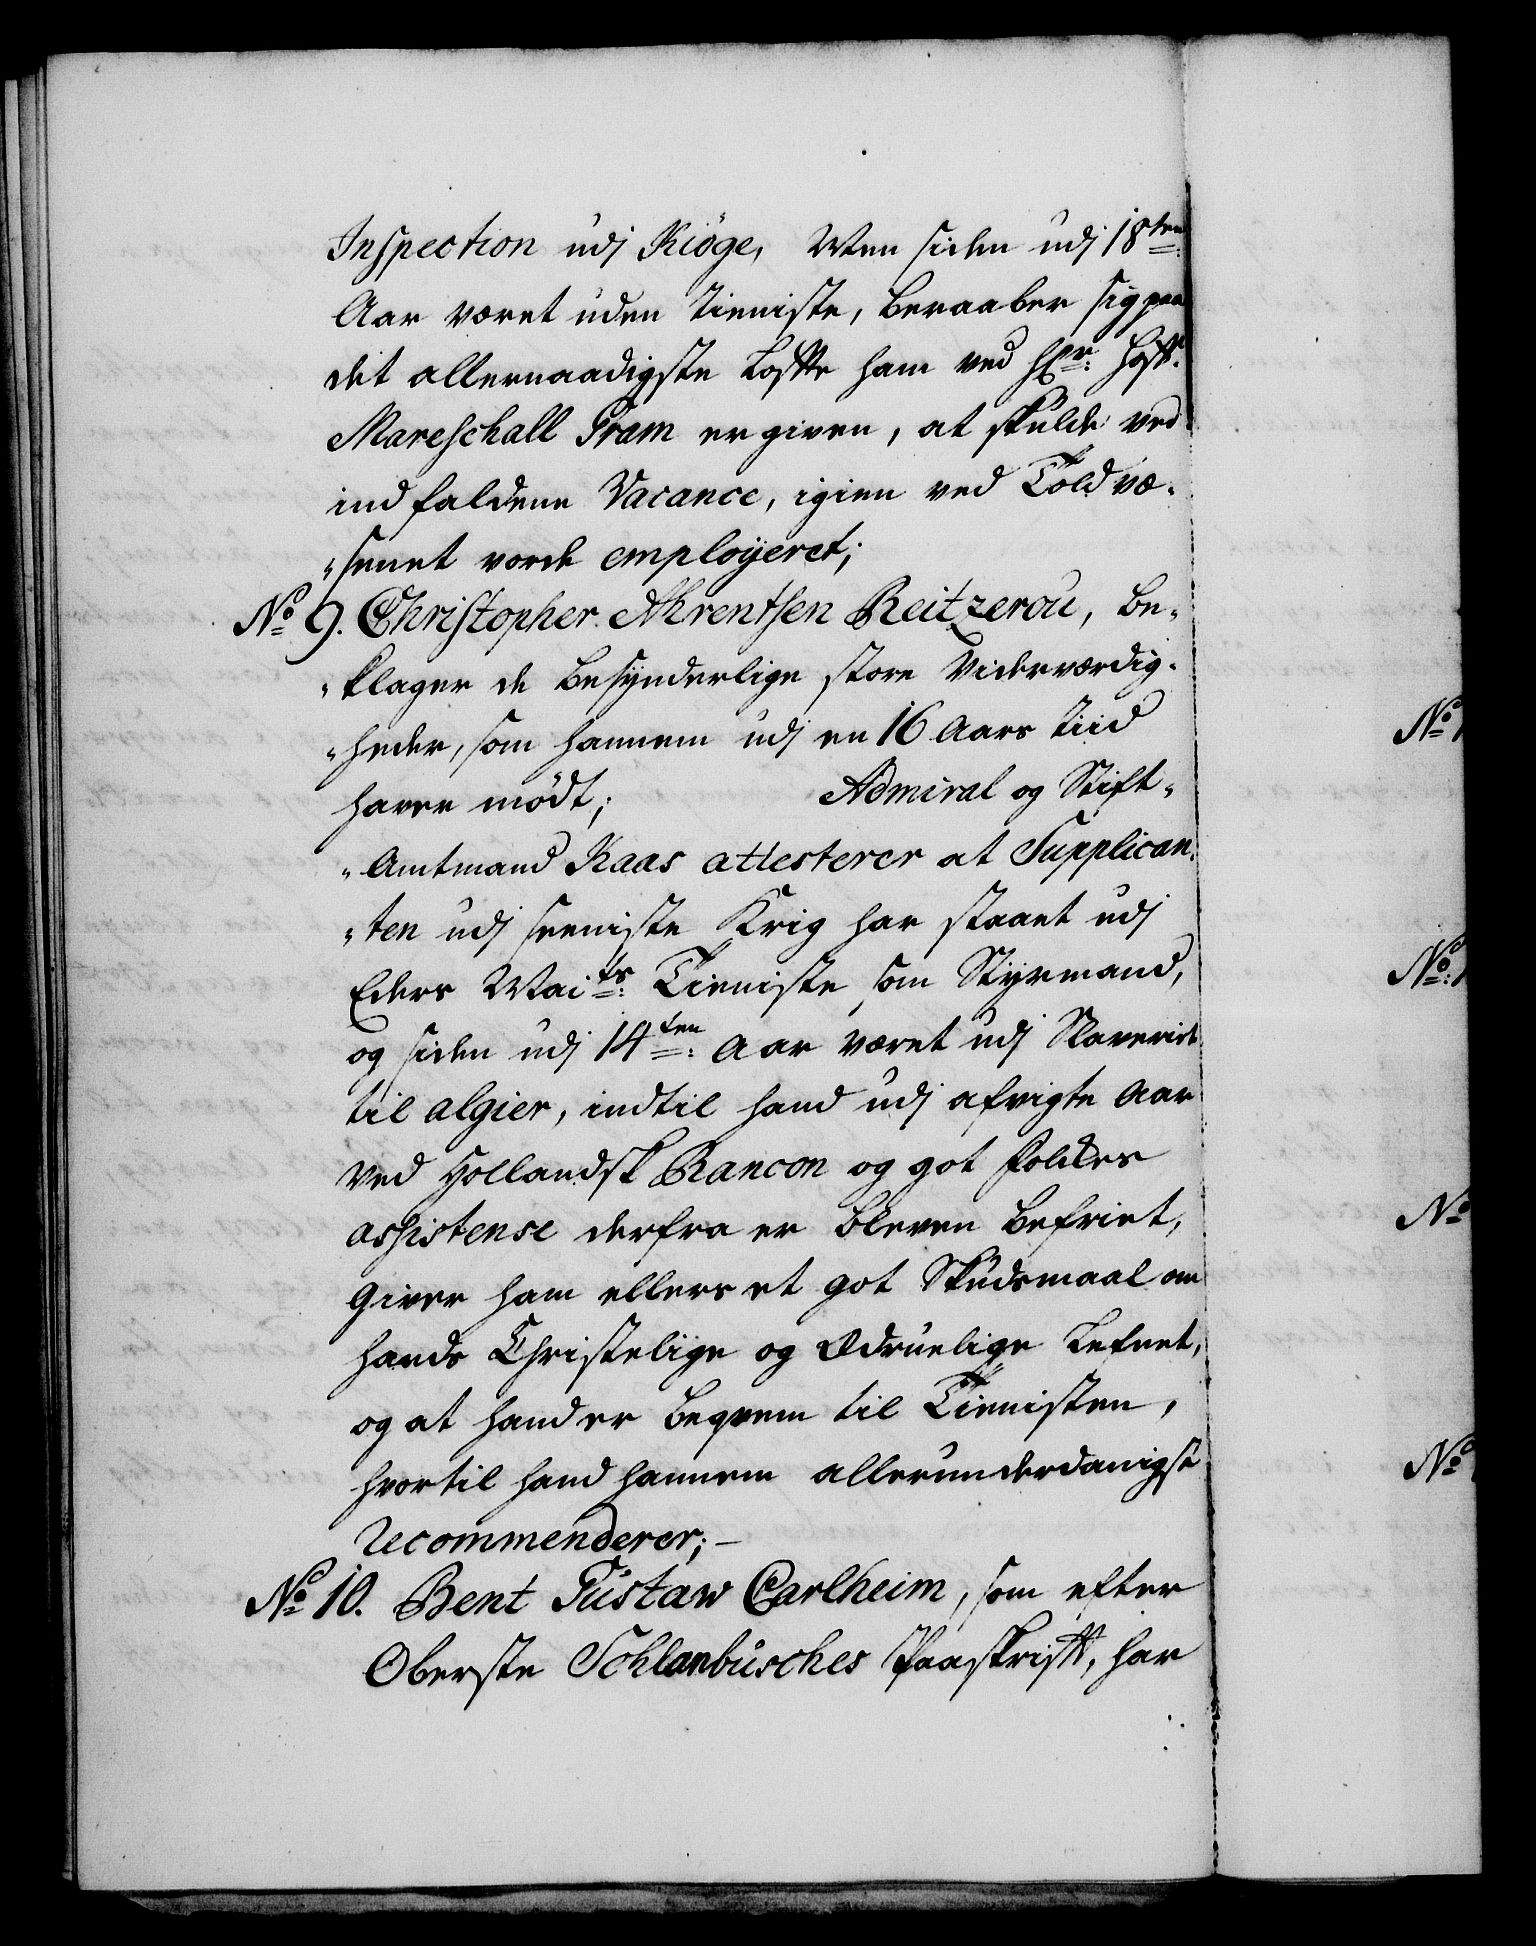 Inspection udj Kiöge, Men siden udj 18ten:
Aar været uden Tieniste, beraaber sig paa
det allernaadigste Løfte ham ved Hr: Hoff-
Mareschall Gram er given, at skulde ved
indfaldene Vacance, igien ved Toldvæ-
-senet vorde employeret;
No 9. Christopher Ahrentsen Reitzerou, be-
-klager de besynderlige store Viderværdig-
-heder, som hannem udj en 16 Aars Tiid
haver mødt; Admiral og Stift-
-Amtmand Kaas attesterer at Supplican-
-ten udj seeniste Krig har staaet udj
Eders Maits: Tieniste som Styrmand,
og siden udj 14ten: Aar været udj Slaveriet
til Algier, indtil hand udj afvigte Aar
ved Hollandsk Rancon og got folckes
assistense derfra er bleven befriet,
Giver ham ellers et got Skudsmaal om
hands Christelige og Ædruelige Lefnet,
og at hand er beqvem til Tienisten,
hvortil hand hannem allerunderdanigst
recommenderer;-
No 10. Bent Gustaw Carlheim, som efter
Oberste Schlanbusches Paaskrift, har
No 1
No: 1
No
No